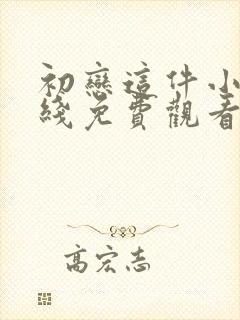 初戀這件小
綫免費觀看
高宏志